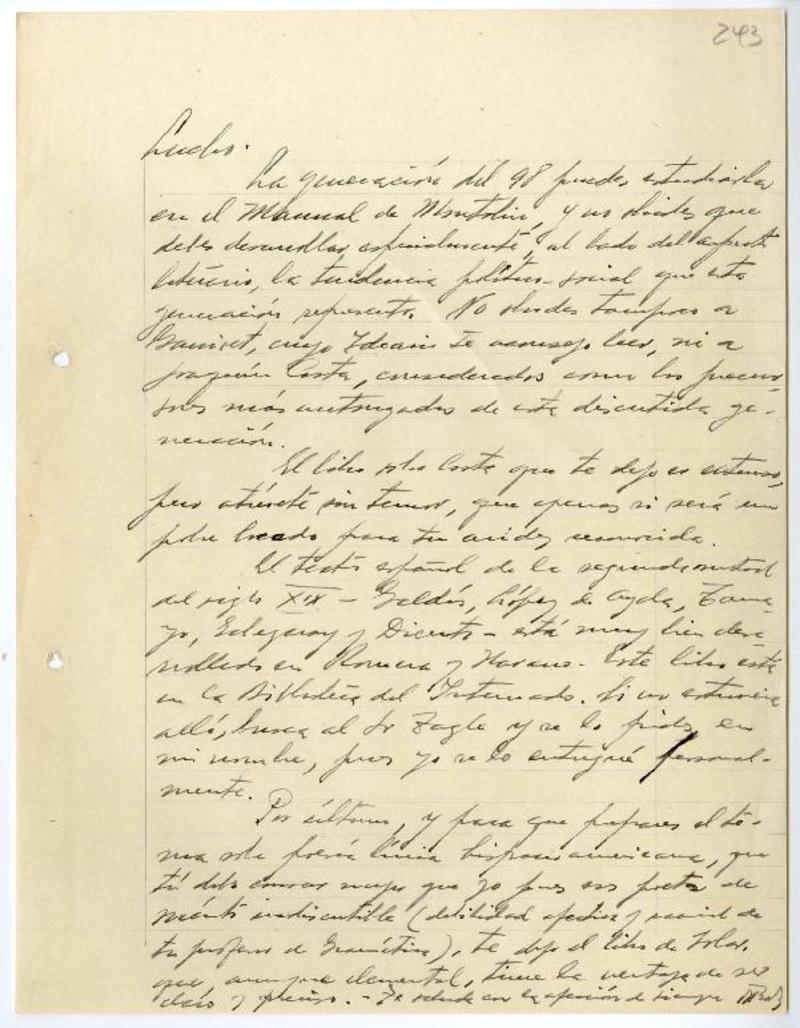 243
Lucho.
La generación del 98 puedes estudiarla
en el Manual de Montoliu, y no olvides que
debes desarrollar especialmente, al lado del aspecto
literario, la tendencia político-social que esta
generación representa. No olvides tampoco a
Ganivet, cuyo Idearium te aconsejo leer, ni a
Joaquín Costa, considerados como los precur-
sores más autorizados de esta discutida ge-
neración.
El libro sobre Costa que te dejo es extenso,
pero atrévete sin temor, que apenas si será un
pobre bocado para tu avidez reconocida.
El teatro español de la segunda mitad
del siglo XIX - Galdós, López de Ayala, Tama-
yo, Echegaray y Dicenta - está muy bien desa-
rrollado en Romera y Navarro. Este libro está
en la Biblioteca del Internado. Si no estuviera
allí, busca al Sr Tagle y se lo pides en
mi nombre, pues yo se lo entregué personal-
mente.
Por último, y para que prepares el te-
ma sobre poesía lírica hispanoamericana, que
tú debes conocer mejor que yo pues eres poeta de
mérito indiscutible (debilidad afectiva y de
tu profesor de Gramática), te dejo el libro de
que, aunque elemental, tiene la ventaja de ser
claro y preciso. - Te saluda con la afección de siempre